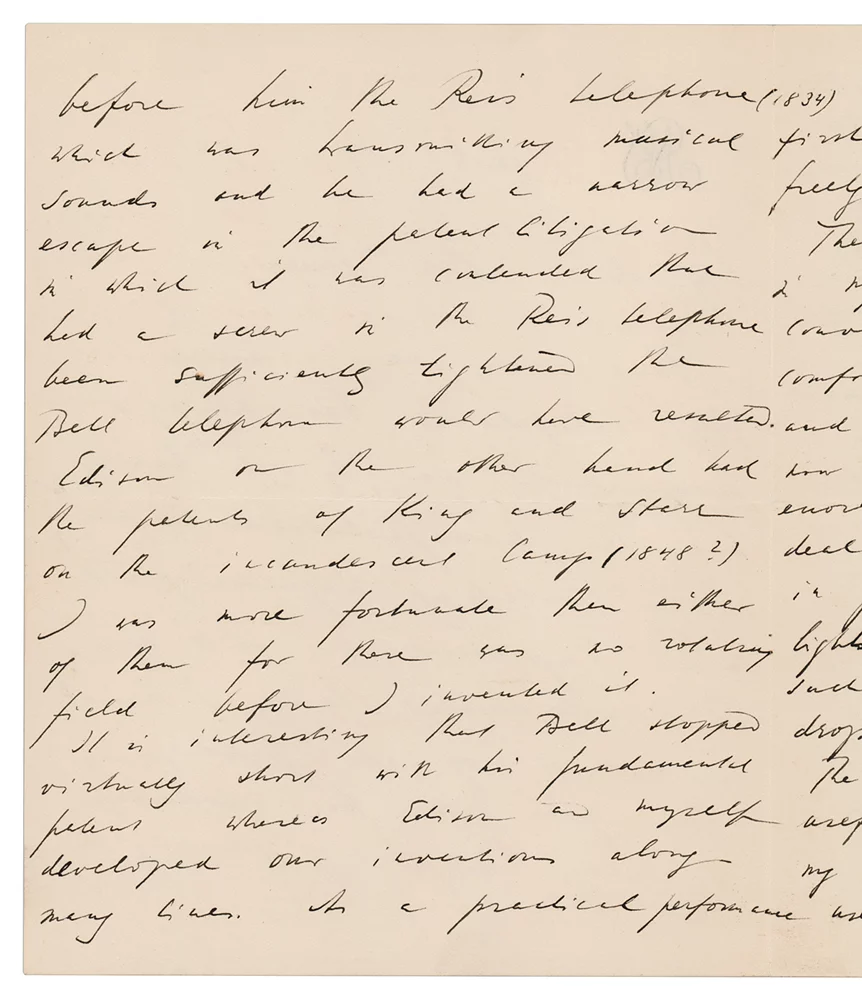 before him the Reis telephone (1834)
which was transmitting musical
sounds and he had a narrow
escape in the patent litigation
in which it was contended that
had a screw in the Reis telephone
been sufficiently tightened the
Bell telephone would have resulted.
Edison on the other hand had
the patents of King and Starr
on the incandescent lamp (1848?)
I was more fortunate than either
of them for there was no rotating
field before I invented it.
It is interesting that Bell stopped
virtually short with his fundamental
patent whereas Edison and myself
developed our inventions along
many lines. As a practical performance
first
freely
The
in
and
now
deal
in
such
The
my